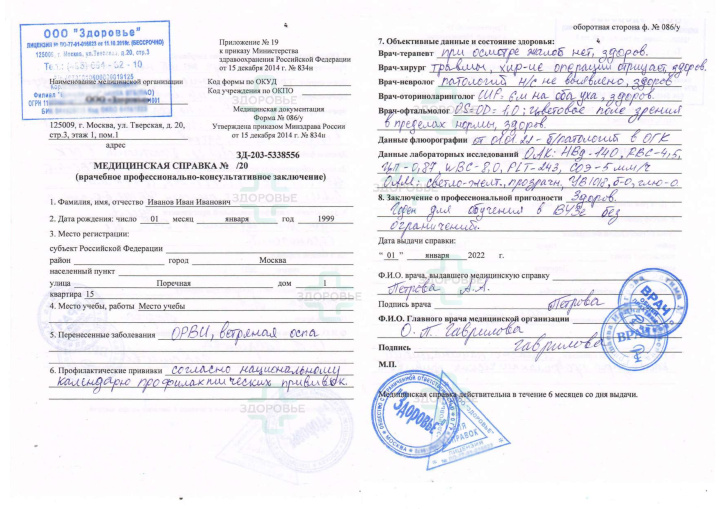 4
ООО "Здоровье"
ЛИЦЕНЗИЯ № ЛО-77-01-016823 от 11.10.2018г. (БЕССРОЧНО)
125009, г. Москва, ул.Тверская, д.20, стр.3
Приложение № 19
к приказу Министерства
здравоохранения Российской Федерации
от 15 декабря 2014 г. № 834н
Наименование медицинской организации
Код формы по ОКУД
Код учреждения по ОКПО
Медицинская документация
Форма № 086/у
Утверждена приказом Минздрава России
от 15 декабря 2014 г. № 834н
125009, г. Москва, ул. Тверская, д. 20,
стр.3, этаж 1, пом.1
адрес
ЗД-203-5338556
МЕДИЦИНСКАЯ СПРАВКА № /20
(врачебное профессионально-консультативное заключение)
1. Фамилия, имя, отчество Иванов Иван Иванович
2. Дата рождения: число 01 месяц января год 1999
3. Место регистрации:
субъект Российской Федерации
район город Москва
населенный пункт
улица Поречная дом 1
квартира 15
4. Место учебы, работы Место учебы
5. Перенесенные заболевания ОРВИ, ветряная оспа
6. Профилактические прививки согласно национальному
календарю профилактических прививок.
ЗДОРОВЬЕ
оборотная сторона ф. № 086/у
4
7. Объективные данные и состояние здоровья:
Врач-терапевт при осмотре жалоб нет, здоров.
Врач-хирург травмы, хир-ие операции отрицает, здоров.
Врач-невролог патологий н/с не выявлено, здоров
Врач-оториноларинголог 6м на оба уха, здоров.
Врач-офтальмолог OS=OD=1,0; цветовое поле зрения
в пределах нормы, здоров.
Данные флюорографии от 01.01.21 - б/патологий в ОГК
Данные лабораторных исследований ОАК: HBg-140, RBC-4,5,
WBC-8,0, PLT-243, СОЭ-5 мм/ч
ОАМ: светло-желт, прозрачн,
8. Заключение о профессиональной пригодности Здоров.
Годен для обучения в ВУЗе без
ограничений.
Дата выдачи справки:
" 01 " января 2022 г.
Ф.И.О. врача, выдавшего медицинскую справку
Петрова А.А.
Подпись врача Петрова
Ф.И.О. Главного врача медицинской организации
О. П. Гаврилова
Подпись Гаврилова
М.П.
Медицинская справка действительна в течение 6 месяцев со дня выдачи.
ВРАЧ
ВРАЧ
ЗДОРОВЬЕ
ДЛЯ
СПРАВОК
МОСКВА